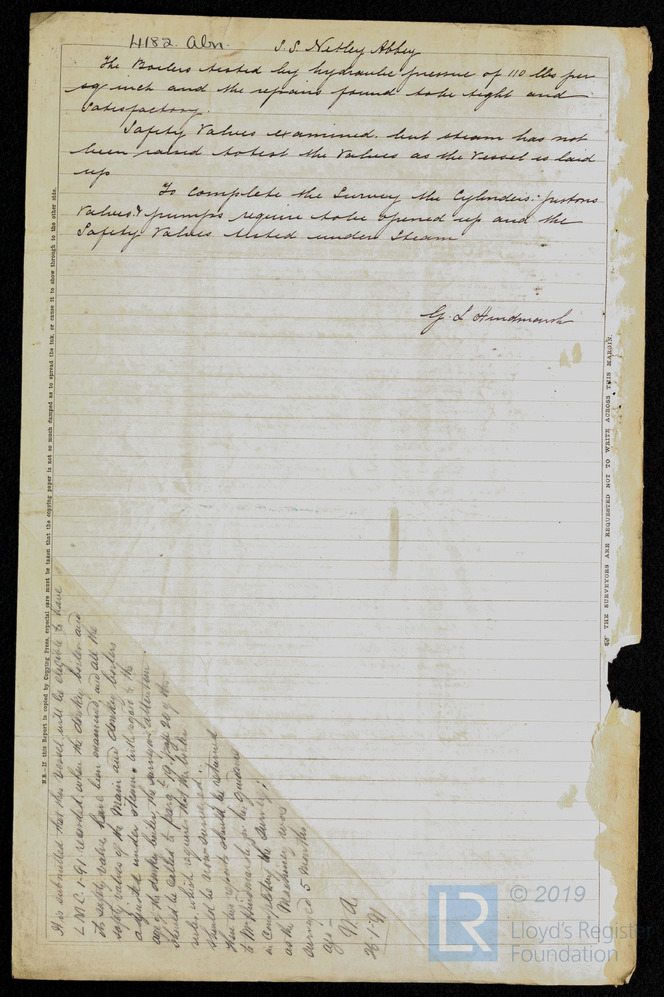 4182. Abn. S.S. Netley Abbey
The Boilers tested by hydraulic pressure of 110 lbs per
sq inch and the repairs found to be tight and
Satisfactory.
Safety Valves examined but steam has not
been raised to test the Valves as the Vessel is laid
up
To complete the Survey the Cylinders: pistons
Valves & pumps require to be opened up and the
Safety Valves tested under Steam
G. L. Hindmarsh
N.B.—If this Report is copied by Copying Press, especial care must be taken that the copying paper is not so much damped as to spread the ink, or cause it to show through to the other side.
THE SURVEYORS ARE REQUESTED NOT TO WRITE ACROSS THIS MARGIN.
It is submitted that this vessel will be eligible to have
LMC 1.91 recorded when the donkey boiler and
its safety valve have been examined, and all the
safety valves of the Main and donkey boilers
adjusted under steam; with regard to the
age of the donkey boiler, the surveyors attention
should be called to para 19, page 20 of the
rules which requires that the boiler
should be now surveyed:
These two reports should be returned
to Mr Hindmarsh for his guidance
in Completing the Survey;
as the Machinery was
surveyed 5 months
ago.
26.1.91
© 2019
LR
Lloyd's Register
Foundation